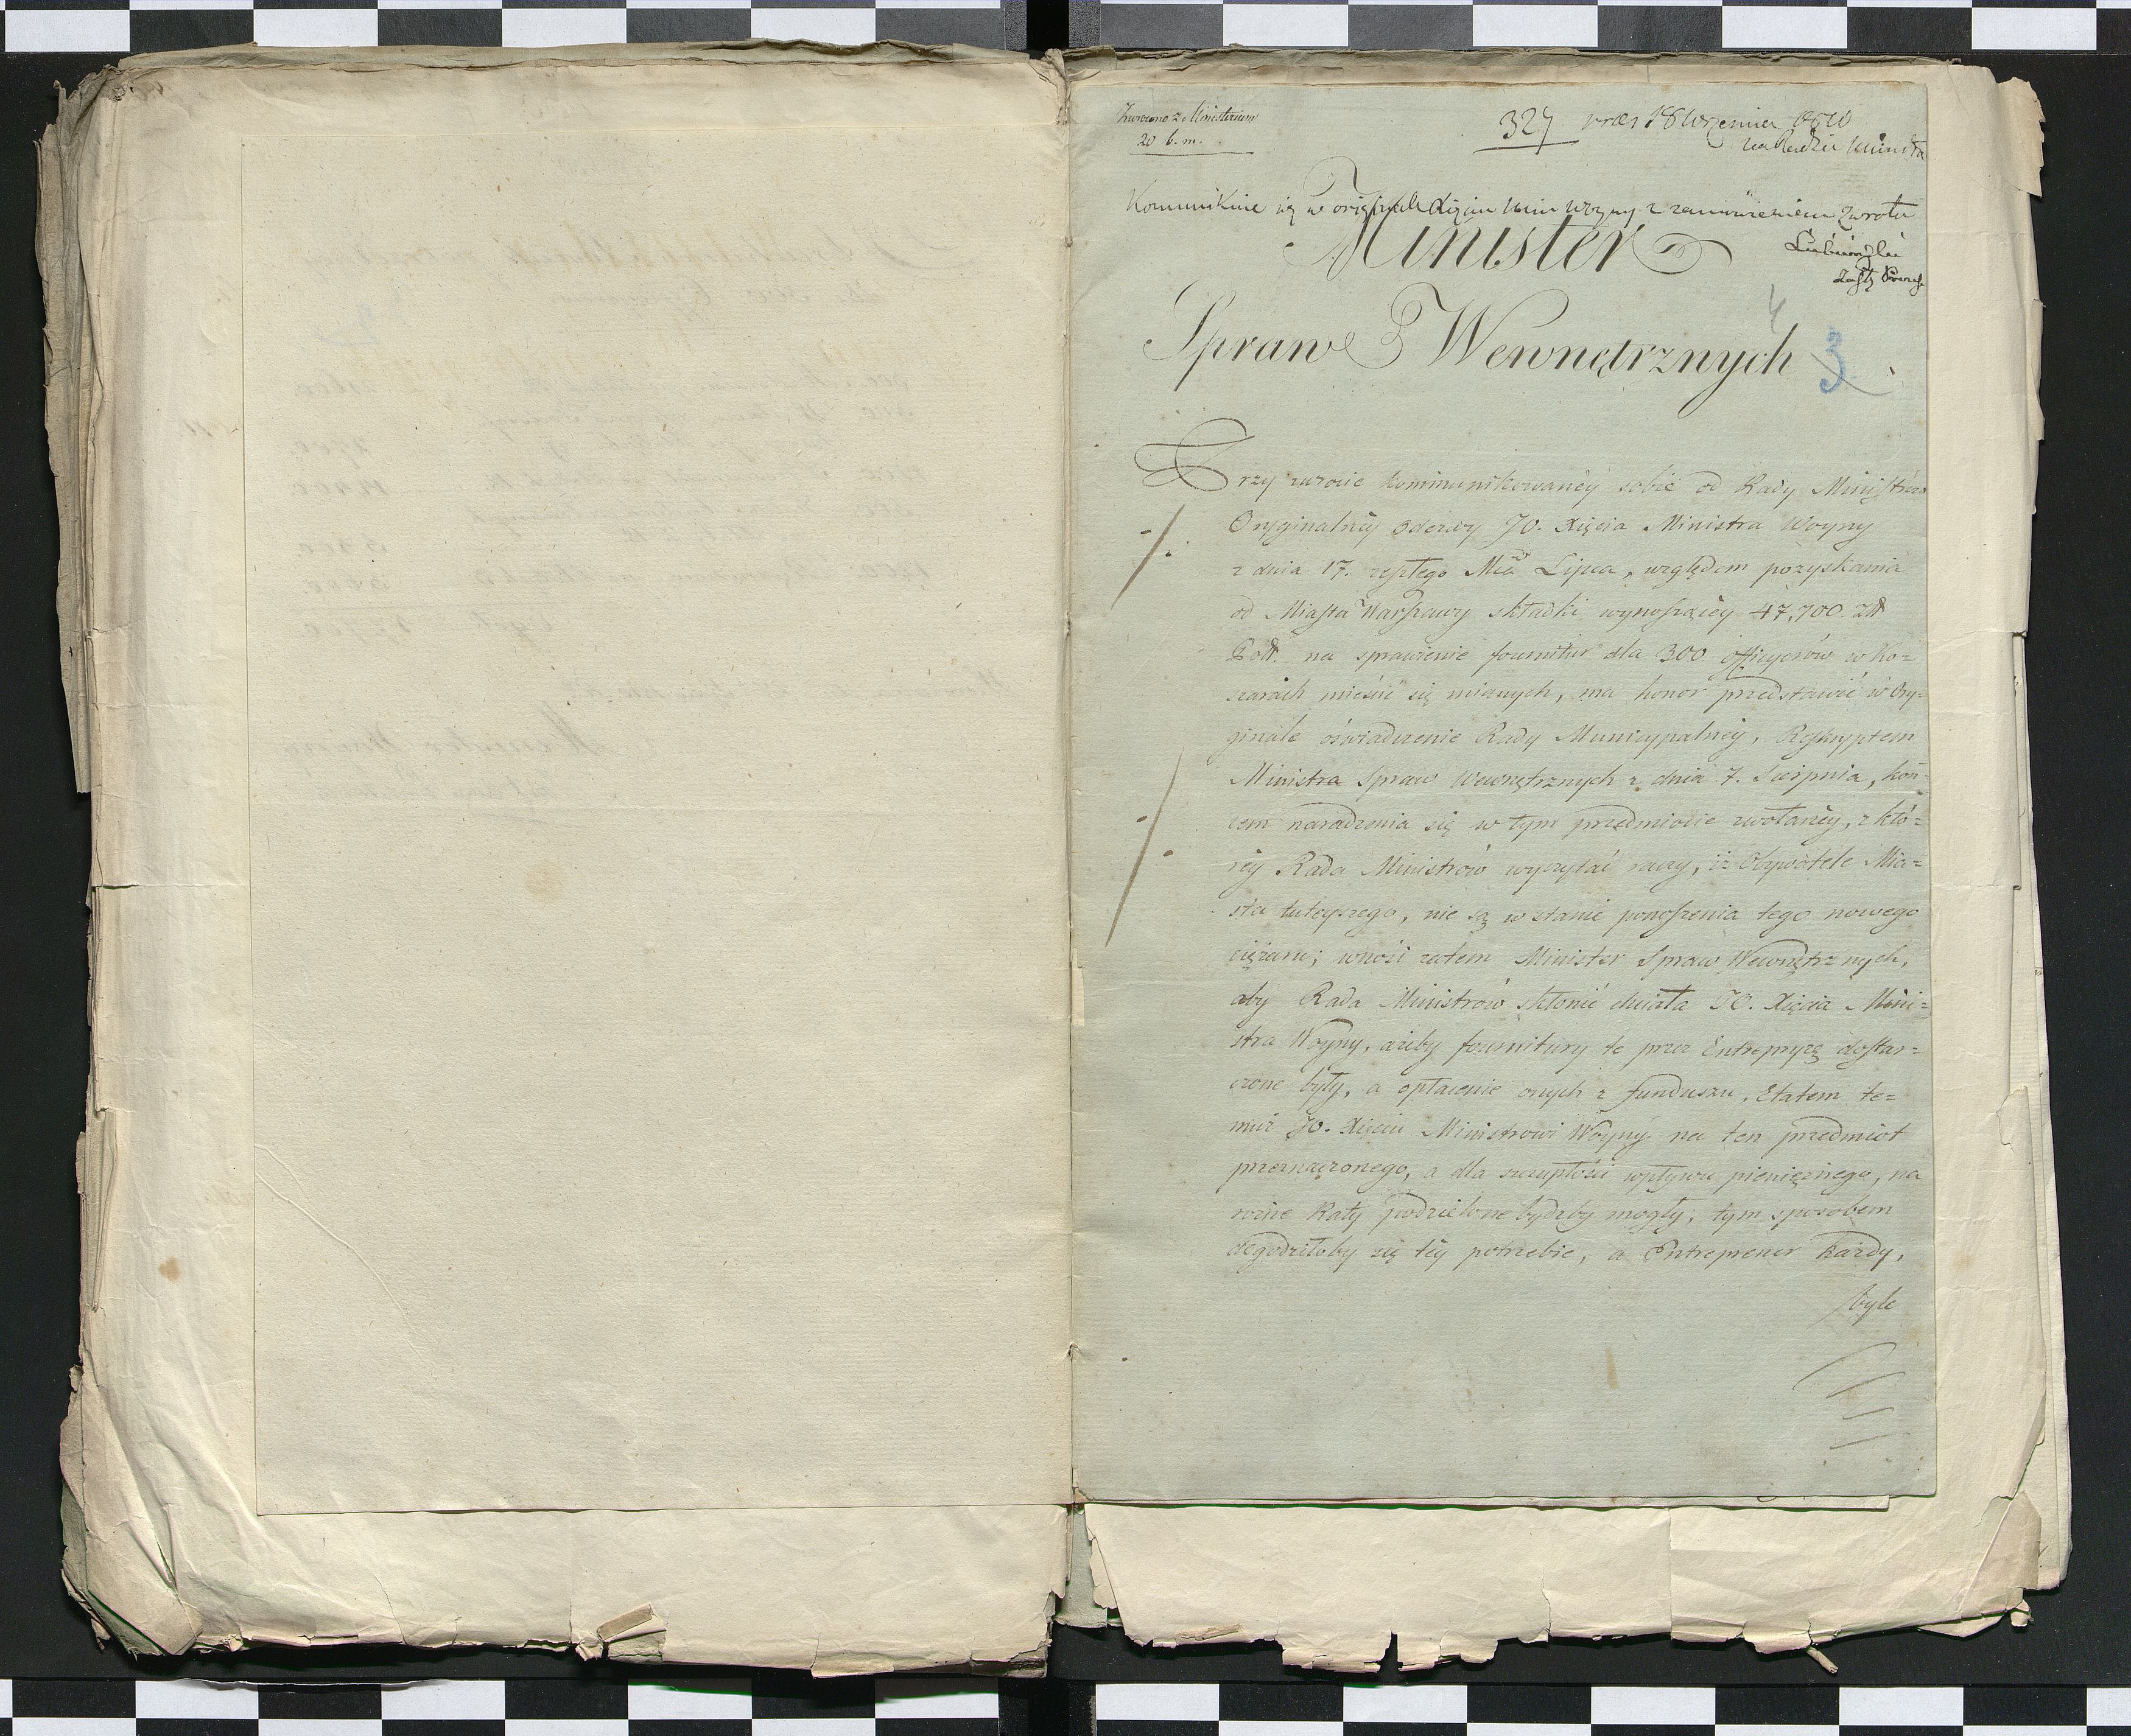 Zwrocono z Ministerium
20 b. m.
327 18 Września
na Radzie Ministr
Kommunikuie się w originale Xięciu Min Woyny z zamowieniem zwrotu
Lubieński
Minister
Spraw Wewnętrznych
4
3
Przy zwrocie kommunikowanéy sobie od Rady Ministrów
Oryginalnéy odezwy JO. Xięcia Ministra Woyny
z dnia 17. zeszłego Mca Lipca, względem pozyskania
od Miasta Warszawy składki wynoszącéy 47,700. Złł
Poll. na sprawienie fournitur dla 300 officyerów w Ko=
szarach mieścić się maiących, ma honor przedstawić w Ory-
ginale oświadczenie Rady Municypalnéy, Reskryptem
Ministra Spraw Wewnętrznych z dnia 7. Sierpnia, koń-
cem naradzenia się w tym przedmiocie zwołanéy, z któ=
réy Rada Ministrów wyczytać raczy, iż Obywatele Mia=
sta tuteyszego, nie są w stanie ponoszenia tego nowego
ciężaru; wnosi zatem Minister Spraw Wewnętrznych,
aby Rada Ministrów skłonić chciała JO. Xięcia Mini=
stra Woyny, ażeby fournitury te przez Entrepryzę dostar=
czone były, a opłacenie onych z funduszu, Etatem te=
muż JO. Xięciu Ministrowi Woyny na ten przedmiot
przeznaczonego, a dla szczupłości wpływu pieniężnego, na
różne Raty podzielone bydźby mogły; tym sposobem
dogodziłoby się téy potrzebie, a Entreprener każdy,
byle